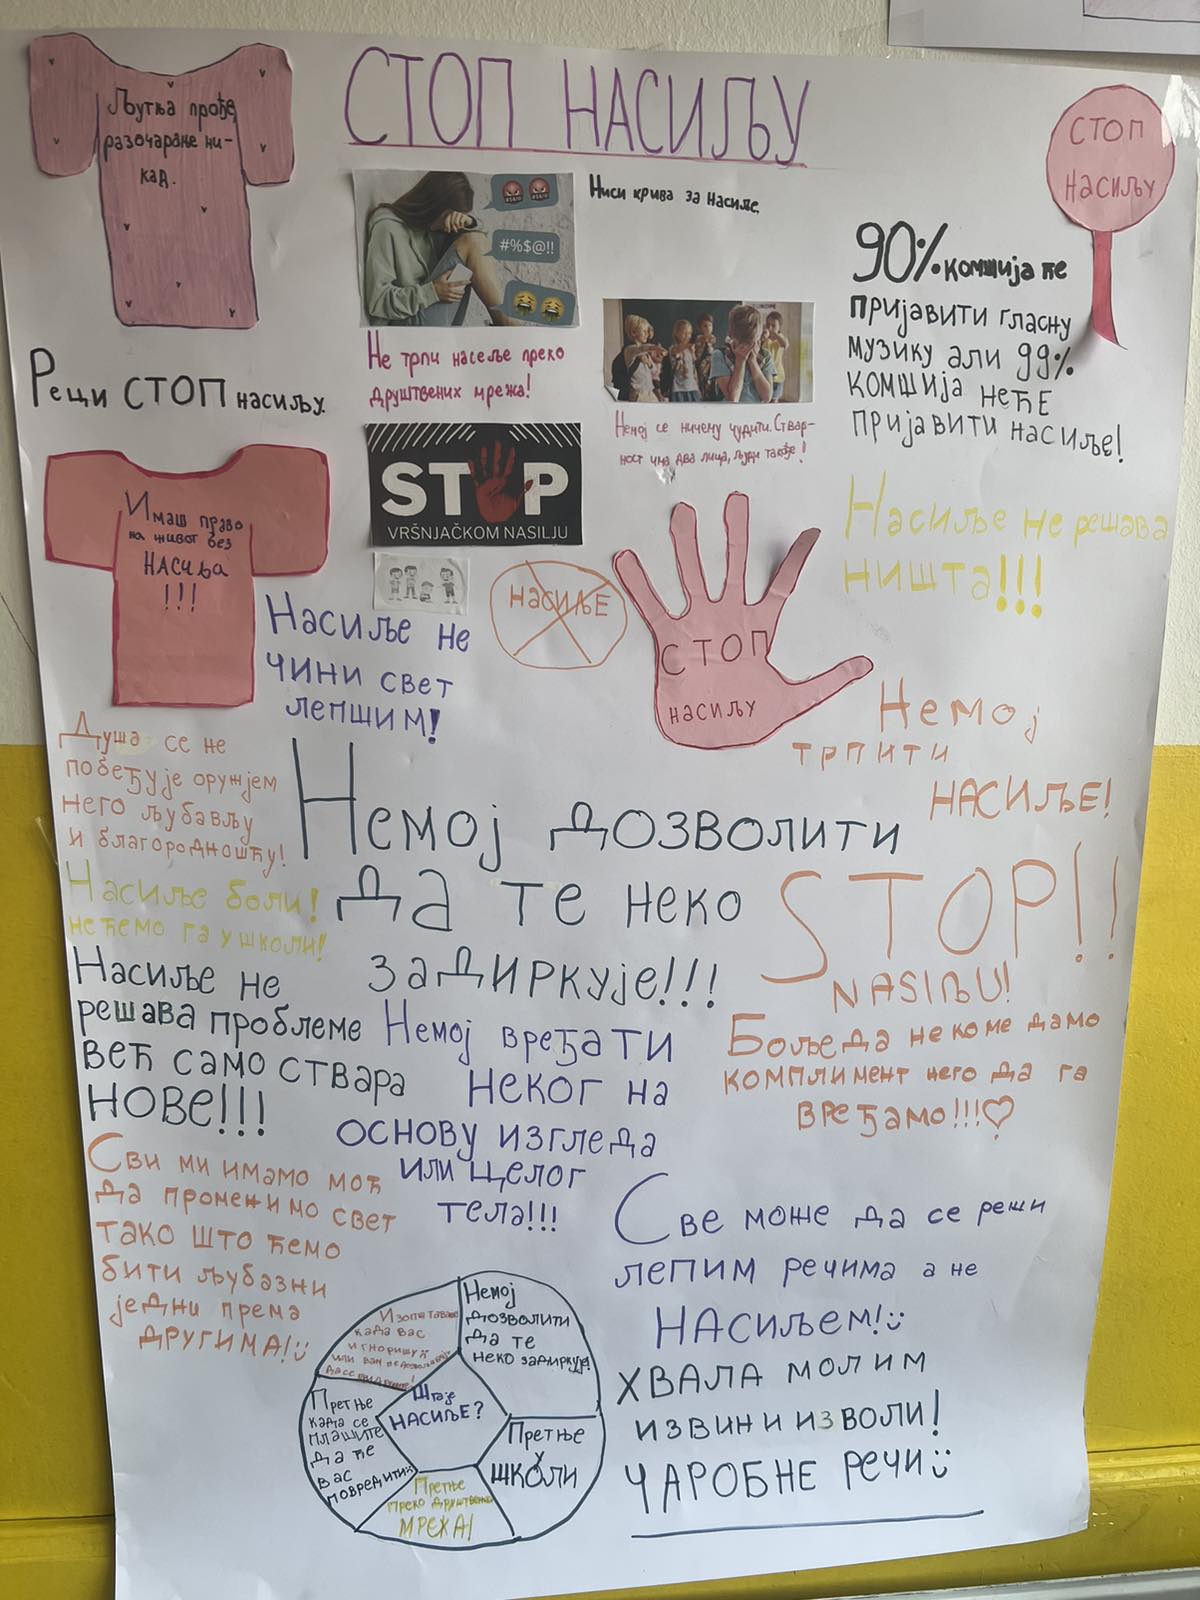 СТОП НАСИЉУ
Љутња прође,
разочаране ни-
кад.
Ниси крива за насиље.
#%$@!!
СТОП
НАСИЉУ
90% комшија ће
пријавити гласну
музику али 99%
комшија неЋЕ
пријавити насиље!
Не трпи насеље преко
друштвених мрежа!
Реци СТОП насиљу.
Немој се ничему чудити. Ствар-
ност има два лица, људи такође!
STOP
VRŠNJAČKOM NASILJU
Имаш право
на живот без
НАСИЉА
!!!
НАСИЉЕ
СТОП
НАСИЉУ
Насиље не решава
ништа!!!
Насиље не
чини свет
лепшим!
Немој
трпити
НАСИЉЕ!
Душа се не
побеђује оружјем
него љубављу
и благородношћу!
Немој дозволити
да те неко
задиркује!!!
STOP!!
NASIЉU!
Насиље боли!
нећемо га у школи!
Насиље не
решава проблеме
већ само ствара
нове!!!
Немој вређати
неког на
основу изгледа
или целог
тела!!!
Боље да некоме дамо
комплимент него да га
вређамо!!!
Сви ми имамо моћ
да променимо свет
тако што ћемо
бити љубазни
једни према
другима!
Све може да се реши
лепим речима а не
НАСИЉЕМ!
ХВАЛА МОЛИМ
ИЗВИНИ ИЗВОЛИ!
ЧАРОБНЕ РЕЧИ
када вас
игноришу
Немој
дозволити
да те
неко задиркује!
Шта је
НАСИЉЕ?
Претње
када се
плашите
да ће
вас
повредити
Претње
у
школи
Претње
преко друштвених
МРЕЖА!